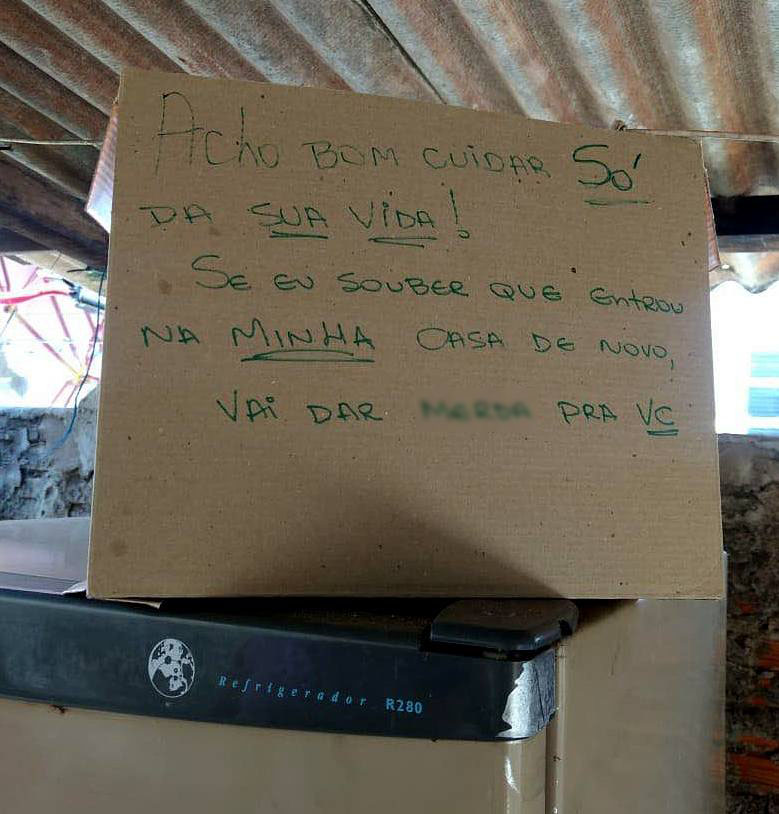 Acho BOM CUIDAR SÓ
DA SUA VIDA!
SE EU SOUBER QUE ENTROU
NA MINHA CASA DE NOVO,
VAI DAR MERDA PRA VC
Refrigerador R280